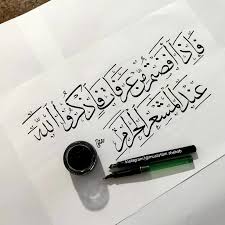 فَإِذَا أَفَضْتُم مِّنْ عَرَفَاتٍ فَاذْكُرُوا اللَّهَ
عِندَ الْمَشْعَرِ الْحَرَامِ